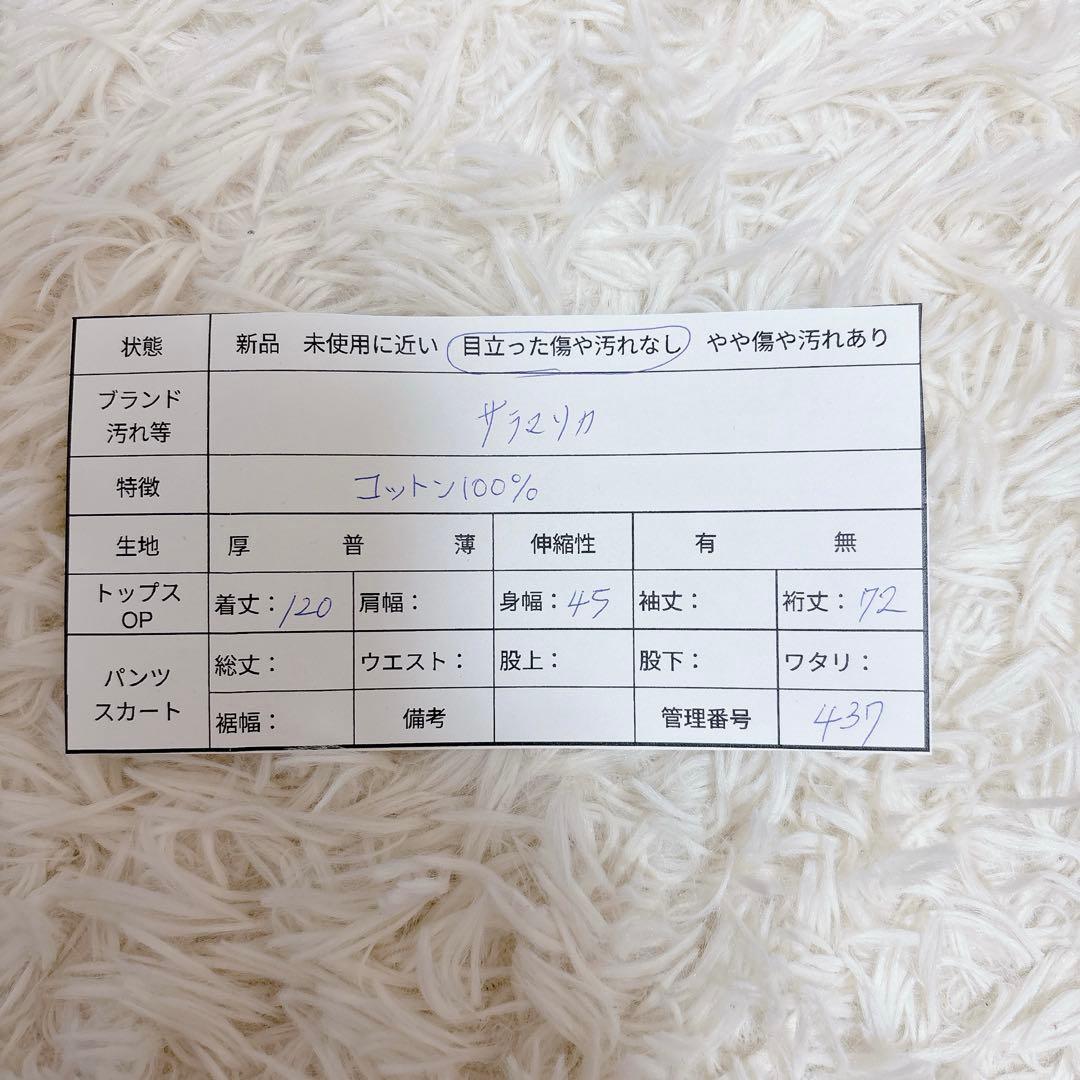 状態 新品 未使用に近い 目立った傷や汚れなし やや傷や汚れあり
ブランド
汚れ等 サラマリカ
特徴 コットン100%
生地 厚 普 薄 伸縮性 有 無
トップス
OP 着丈:120 肩幅: 身幅:45 袖丈: 裄丈:72
パンツ
スカート
総丈: ウエスト: 股上: 股下: ワタリ:
裾幅: 備考 管理番号 437